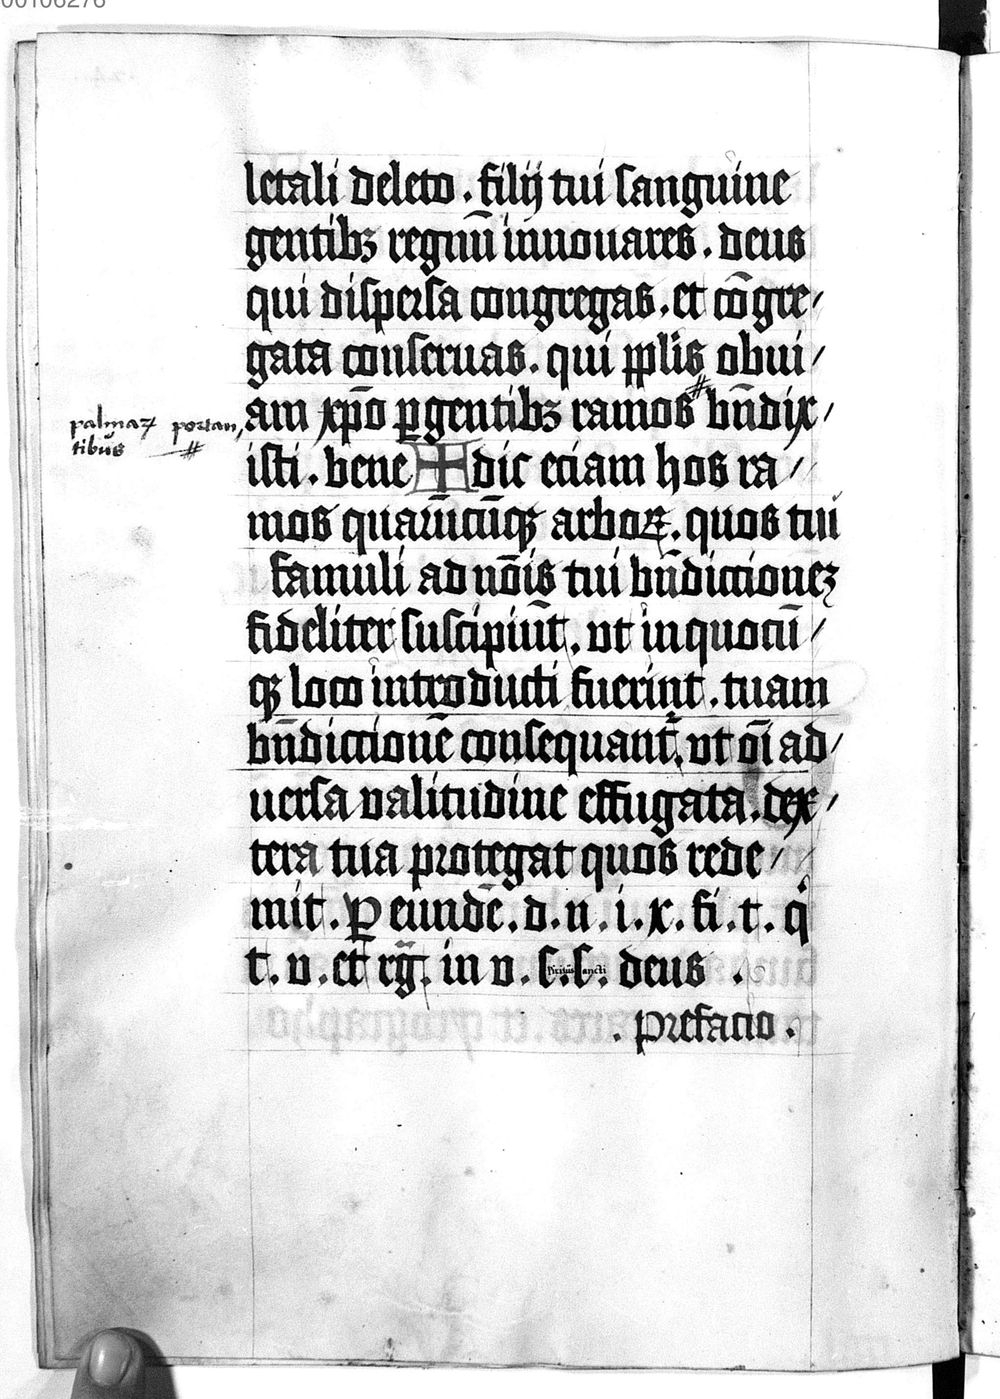 00106276
letali deleto . filij tui sanguine
gentibꝫ regnū innouares . deus
qui dispersa congregas . et cōgre/
gata conseruas . qui pplis obui/
am xp̄o ꝑgentibꝫ ramos bn̄dix/
palmaꝝ portan,
tibus
isti . bene ✠ dic eciam hos ra//
mos quarūcūqꝫ arboꝝ . quos tui
famuli ad nōis tui bn̄dictionēꝫ
fideliter suscipiūt . vt in quocū/
qꝫ loco introducti fuerint . tuam
bn̄dictionē consequant᷑ . vt oī ad/
uersa valitudine effugata . dex/
tera tua protegat quos rede//
mit . ꝑ eundē . d . n . i . x . fi . t . qͥ
t . v . et rḡ . in v . s.piritus s.ancti deus .
. prefacio .